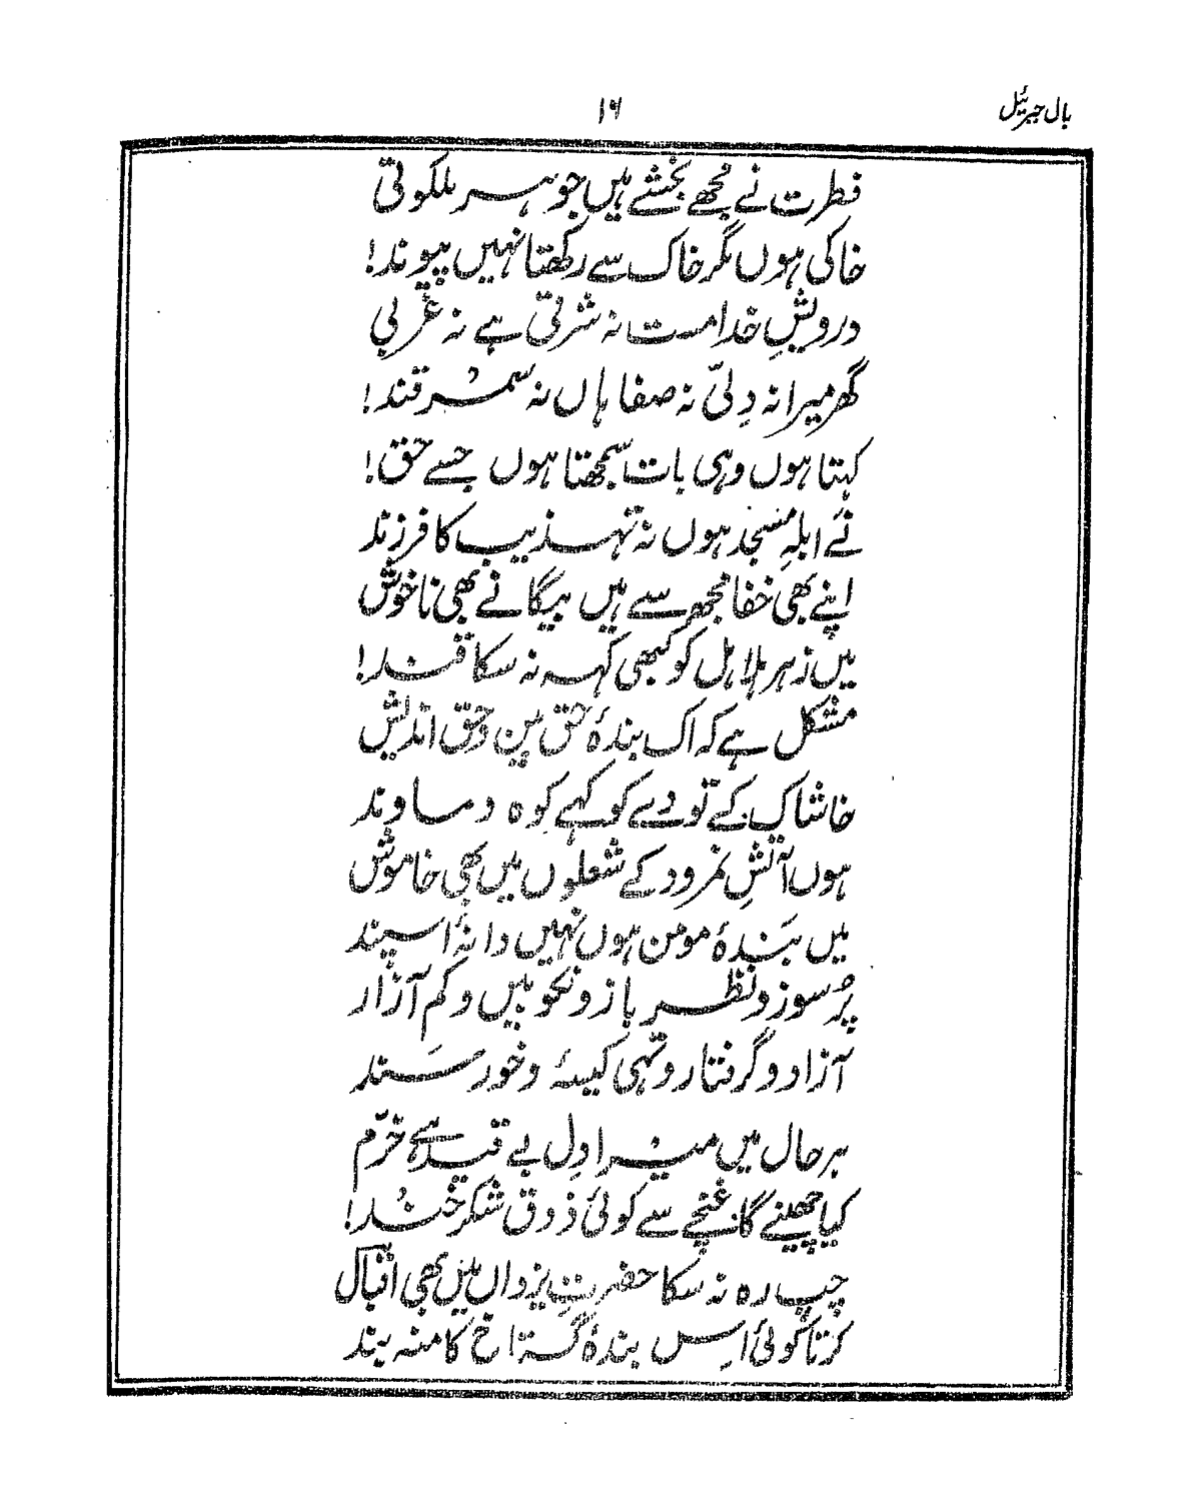 بال جبرئیل
۱۶
فطرت نے مجھے بخشے ہیں جوہر ملکوتی
خاکی ہوں مگر خاک سے رکھتا نہیں پیوند!
درویشِ خدامست نہ شرقی ہے نہ غربی
گھر میرا نہ دِلّی نہ صفاہاں نہ سمرقند!
کہتا ہوں وہی بات سمجھتا ہوں جسے حق!
نَے ابلہِ مسجد ہوں نہ تہذیب کا فرزند
اپنے بھی خفا مجھ سے ہیں بیگانے بھی ناخوش
میں زہر ہلاہل کو کبھی کہہ نہ سکا قند!
مشکل ہے کہ اک بندۂ حق بین و حق اندیش
خاشاک کے تودے کو کہے کوہ دماوند
ہوں آتشِ نمرود کے شعلوں میں بھی خاموش
میں بَندۂ مومن ہوں نہیں دانۂ اسپند
پُرسوز و نظرباز و نکوبیں و کم آزار
آزاد و گرفتار و تہی کیسۂ و خورسَند
ہر حال میں میرا دِل بے قید ہے خرّم
کیا چھینے گا غنچے سے کوئی ذوق شکر خند!
چپ رہ نہ سکا حضرتِ یزداں میں بھی اقبال
کرتا کوئی اس بندۂ گستاخ کا منہ بند